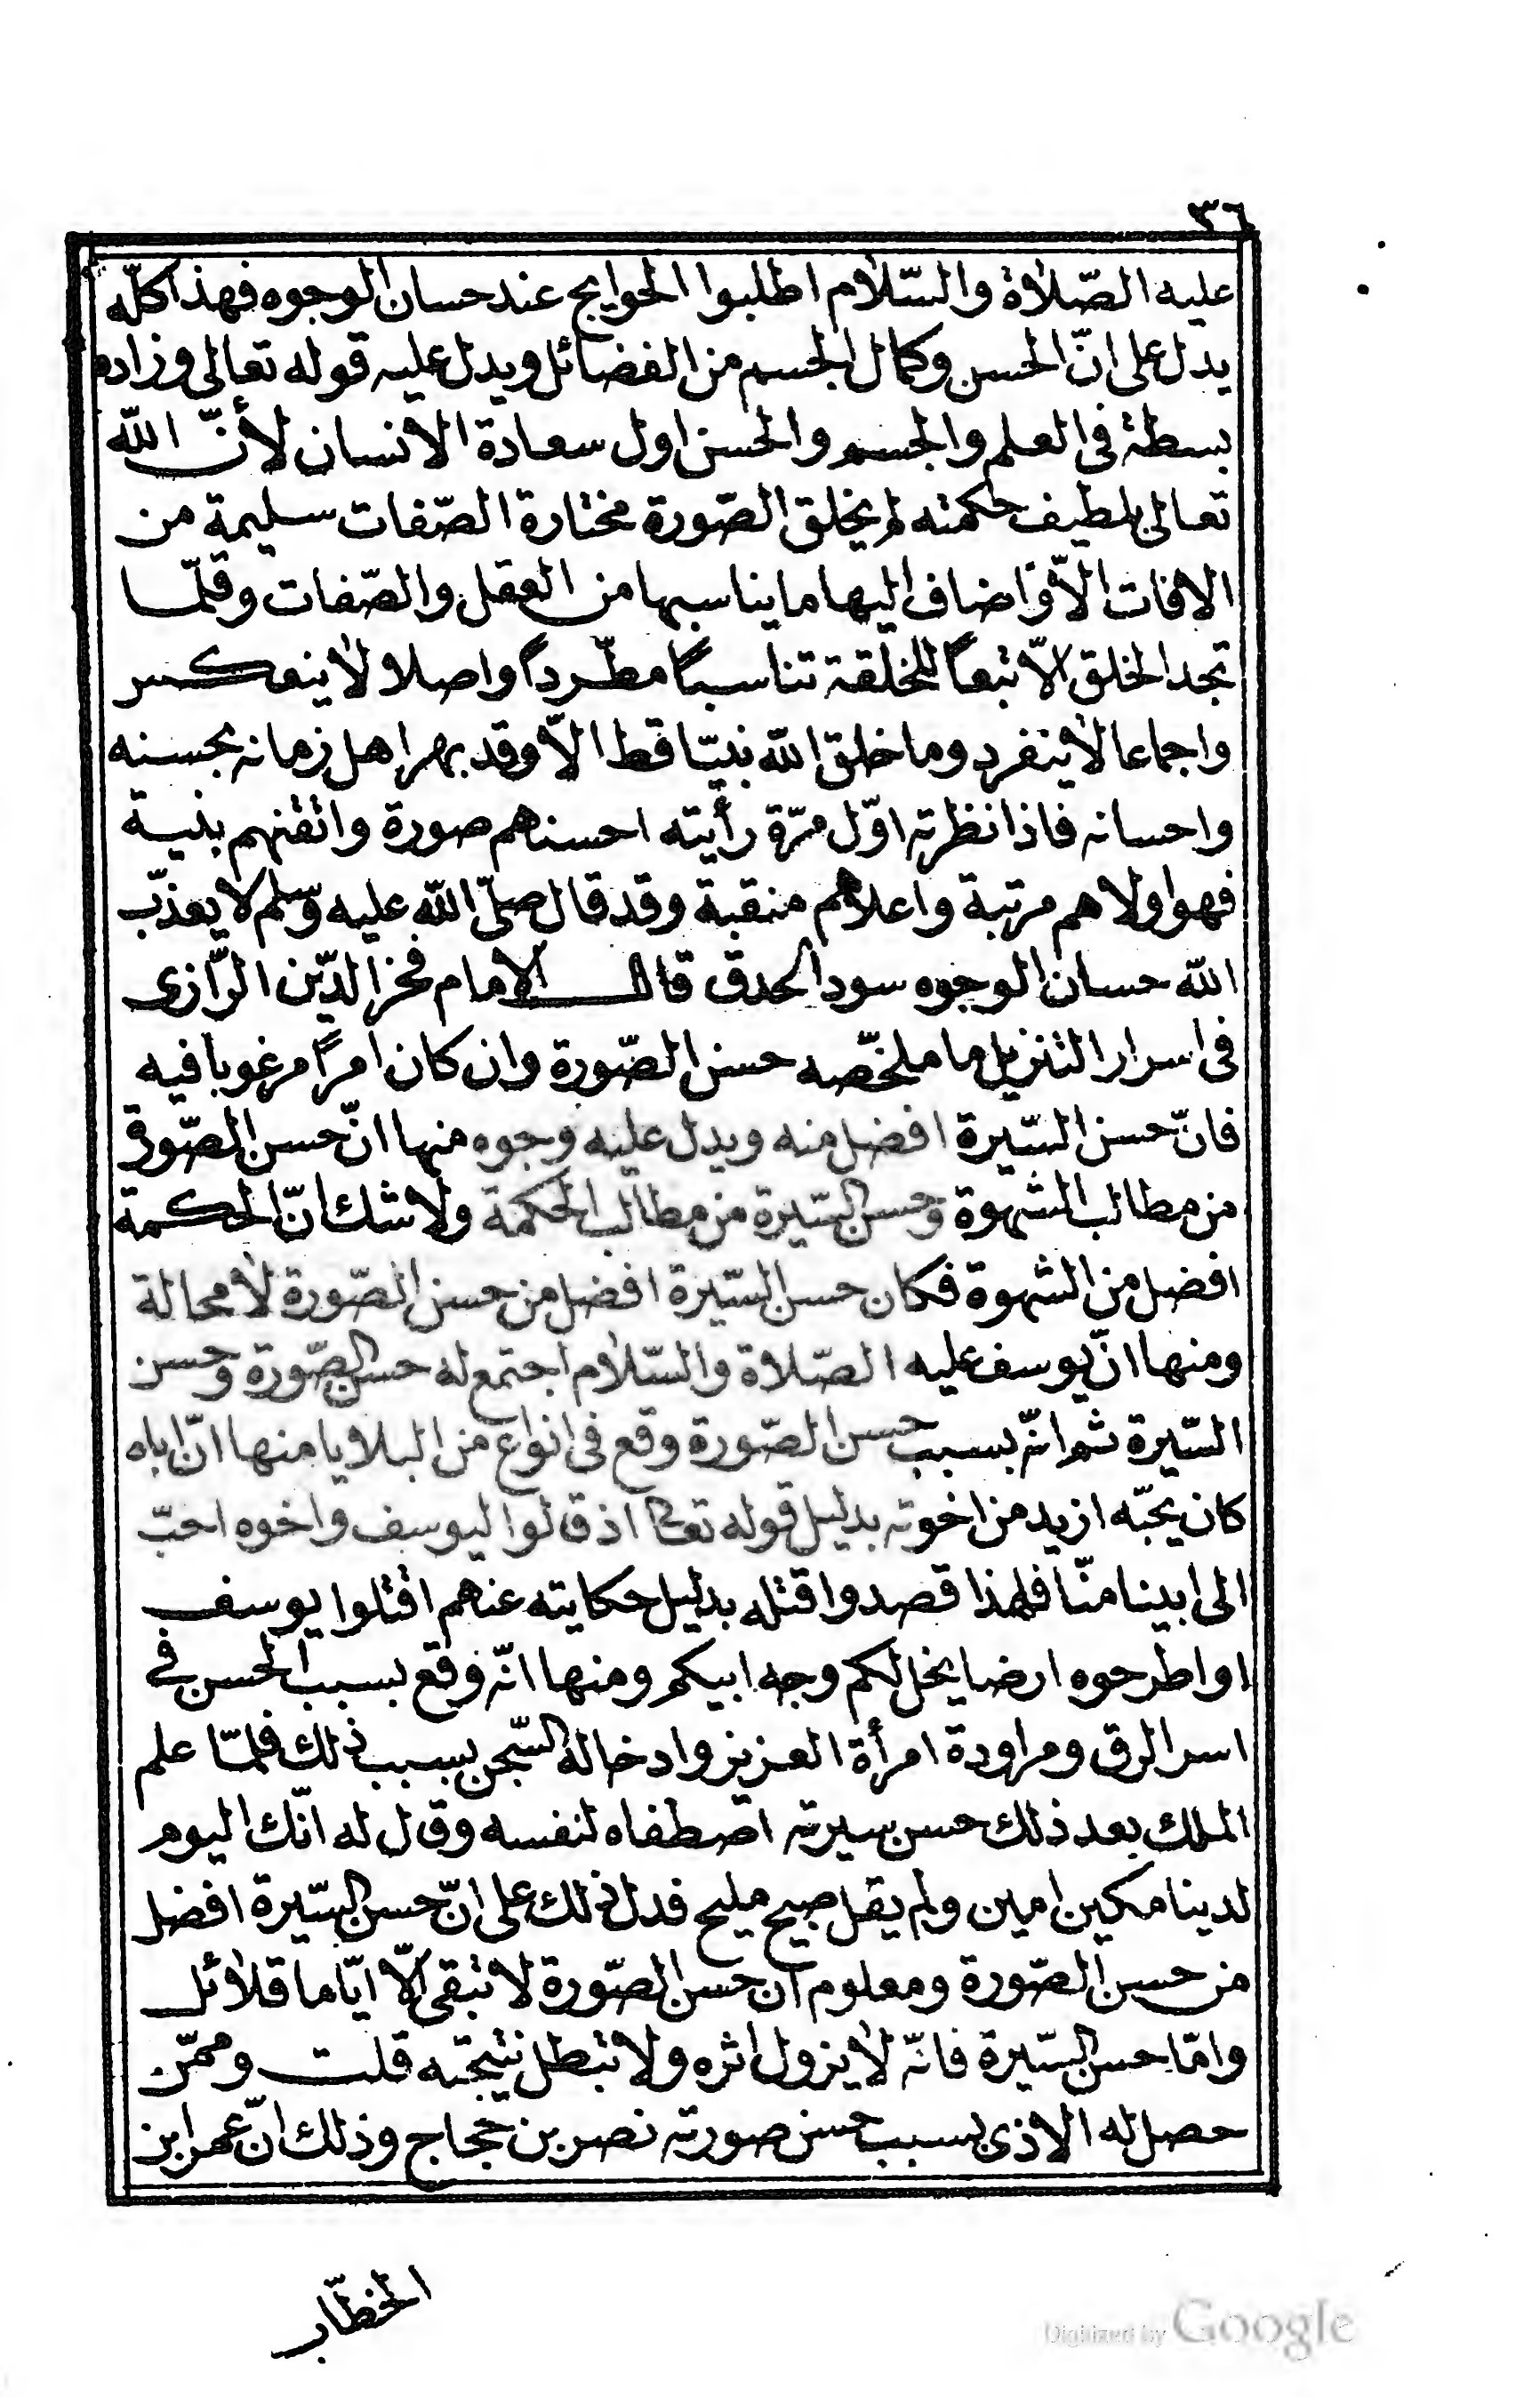 ٣٦
عليه الصّلاة والسّلام اطلبوا الحوايج عند حسان الوجوه فهذا كلّه
يدل على انّ الحسن وكمال الجسم من الفضائل ويدل عليه قوله تعالى وزاده
بسطة فى العلم والجسم والحسن اول سعادة الانسان لأنّ اللّه
تعالى بلطيف حكمته لم يخلق الصّورة مختارة الصّفات سليمة من
الافات الاّ واضاف اليها ما يناسبها من العقل والصّفات وقلّما
تجد الخلق الاّ تبعاً للخلقة تناسباً مطّرداً واصلا لا ينعكس
واجماعا لا ينفرد وما خلق اللّه نبيّا قط الاّ وقد بهر اهل زمانه بحسنه
واحسانه فاذا نظرته اوّل مرّة رأيته احسنهم صورة واتقنهم بنية
فهو اولاهم مرتبة واعلاهم منقبة وقد قال صلّى اللّه عليه وسلم لا يعذّب
اللّه حسان الوجوه سود الحدق قال الامام فخر الدّين الرّازى
فى اسرار التنزيل ما ملخّصه حسن الصّورة وان كان امراً مرغوبا فيه
فانّ حسن السّيرة افضل منه ويدل عليه وجوه منها انّ حسن الصّورة
من مطالب الشهوة وحسن السّيرة من مطالب الحكمة ولا شك انّ الحكمة
افضل من الشهوة فكان حسن السّيرة افضل من حسن الصّورة لا محالة
ومنها انّ يوسف عليه الصّلاة والسّلام اجتمع له حسن الصّورة وحسن
السّيرة ثم انّه بسبب حسن الصّورة وقع فى انواع من البلايا منها انّ اباه
كان يحبّه ازيد من اخوته بدليل قوله تعالى اذ قالوا ليوسف واخوه احبّ
الى ابينا منّا فلهذا قصدوا قتله بدليل حكايته عنهم اقتلوا يوسف
او اطرحوه ارضا يخل لكم وجه ابيكم ومنها انّه وقع بسبب الحسن فى
اسر الرق ومراودة امرأة العزيز وادخاله السّجن بسبب ذلك فلمّا علم
الملك بعد ذلك حسن سيرته اصطفاه لنفسه وقال له انّك اليوم
لدينا مكين امين ولم يقل صبيح مليح فدل ذلك على انّ حسن السّيرة افضل
من حسن الصّورة ومعلوم ان حسن الصّورة لا تبقى الاّ ايّاما قلائل
وامّا حسن السّيرة فانّه لا يزول اثره ولا تبطل نتيجته قلت وممّن
حصل له الاذى بسبب حسن صورته نصر بن حجاج وذلك انّ عمر ابن
الخطّاب
Digitized by Google